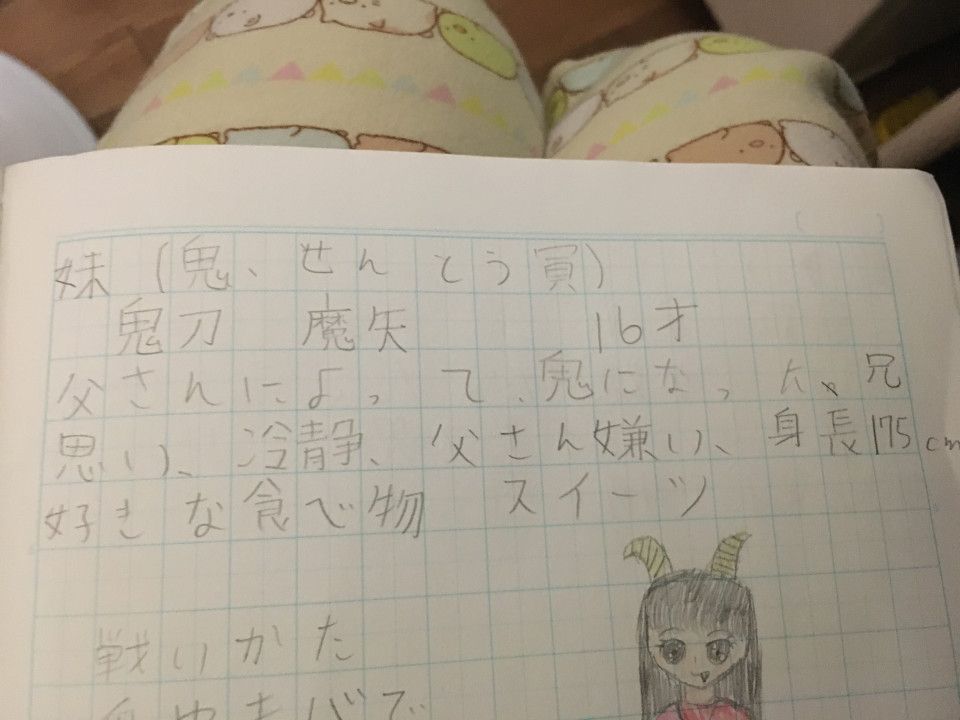 妹(鬼、せんとう員)
鬼刀 魔矢 16才
父さんによって、鬼になった、兄
思い、冷静、父さん嫌い、身長175cm
好きな食べ物 スイーツ
戦いかた